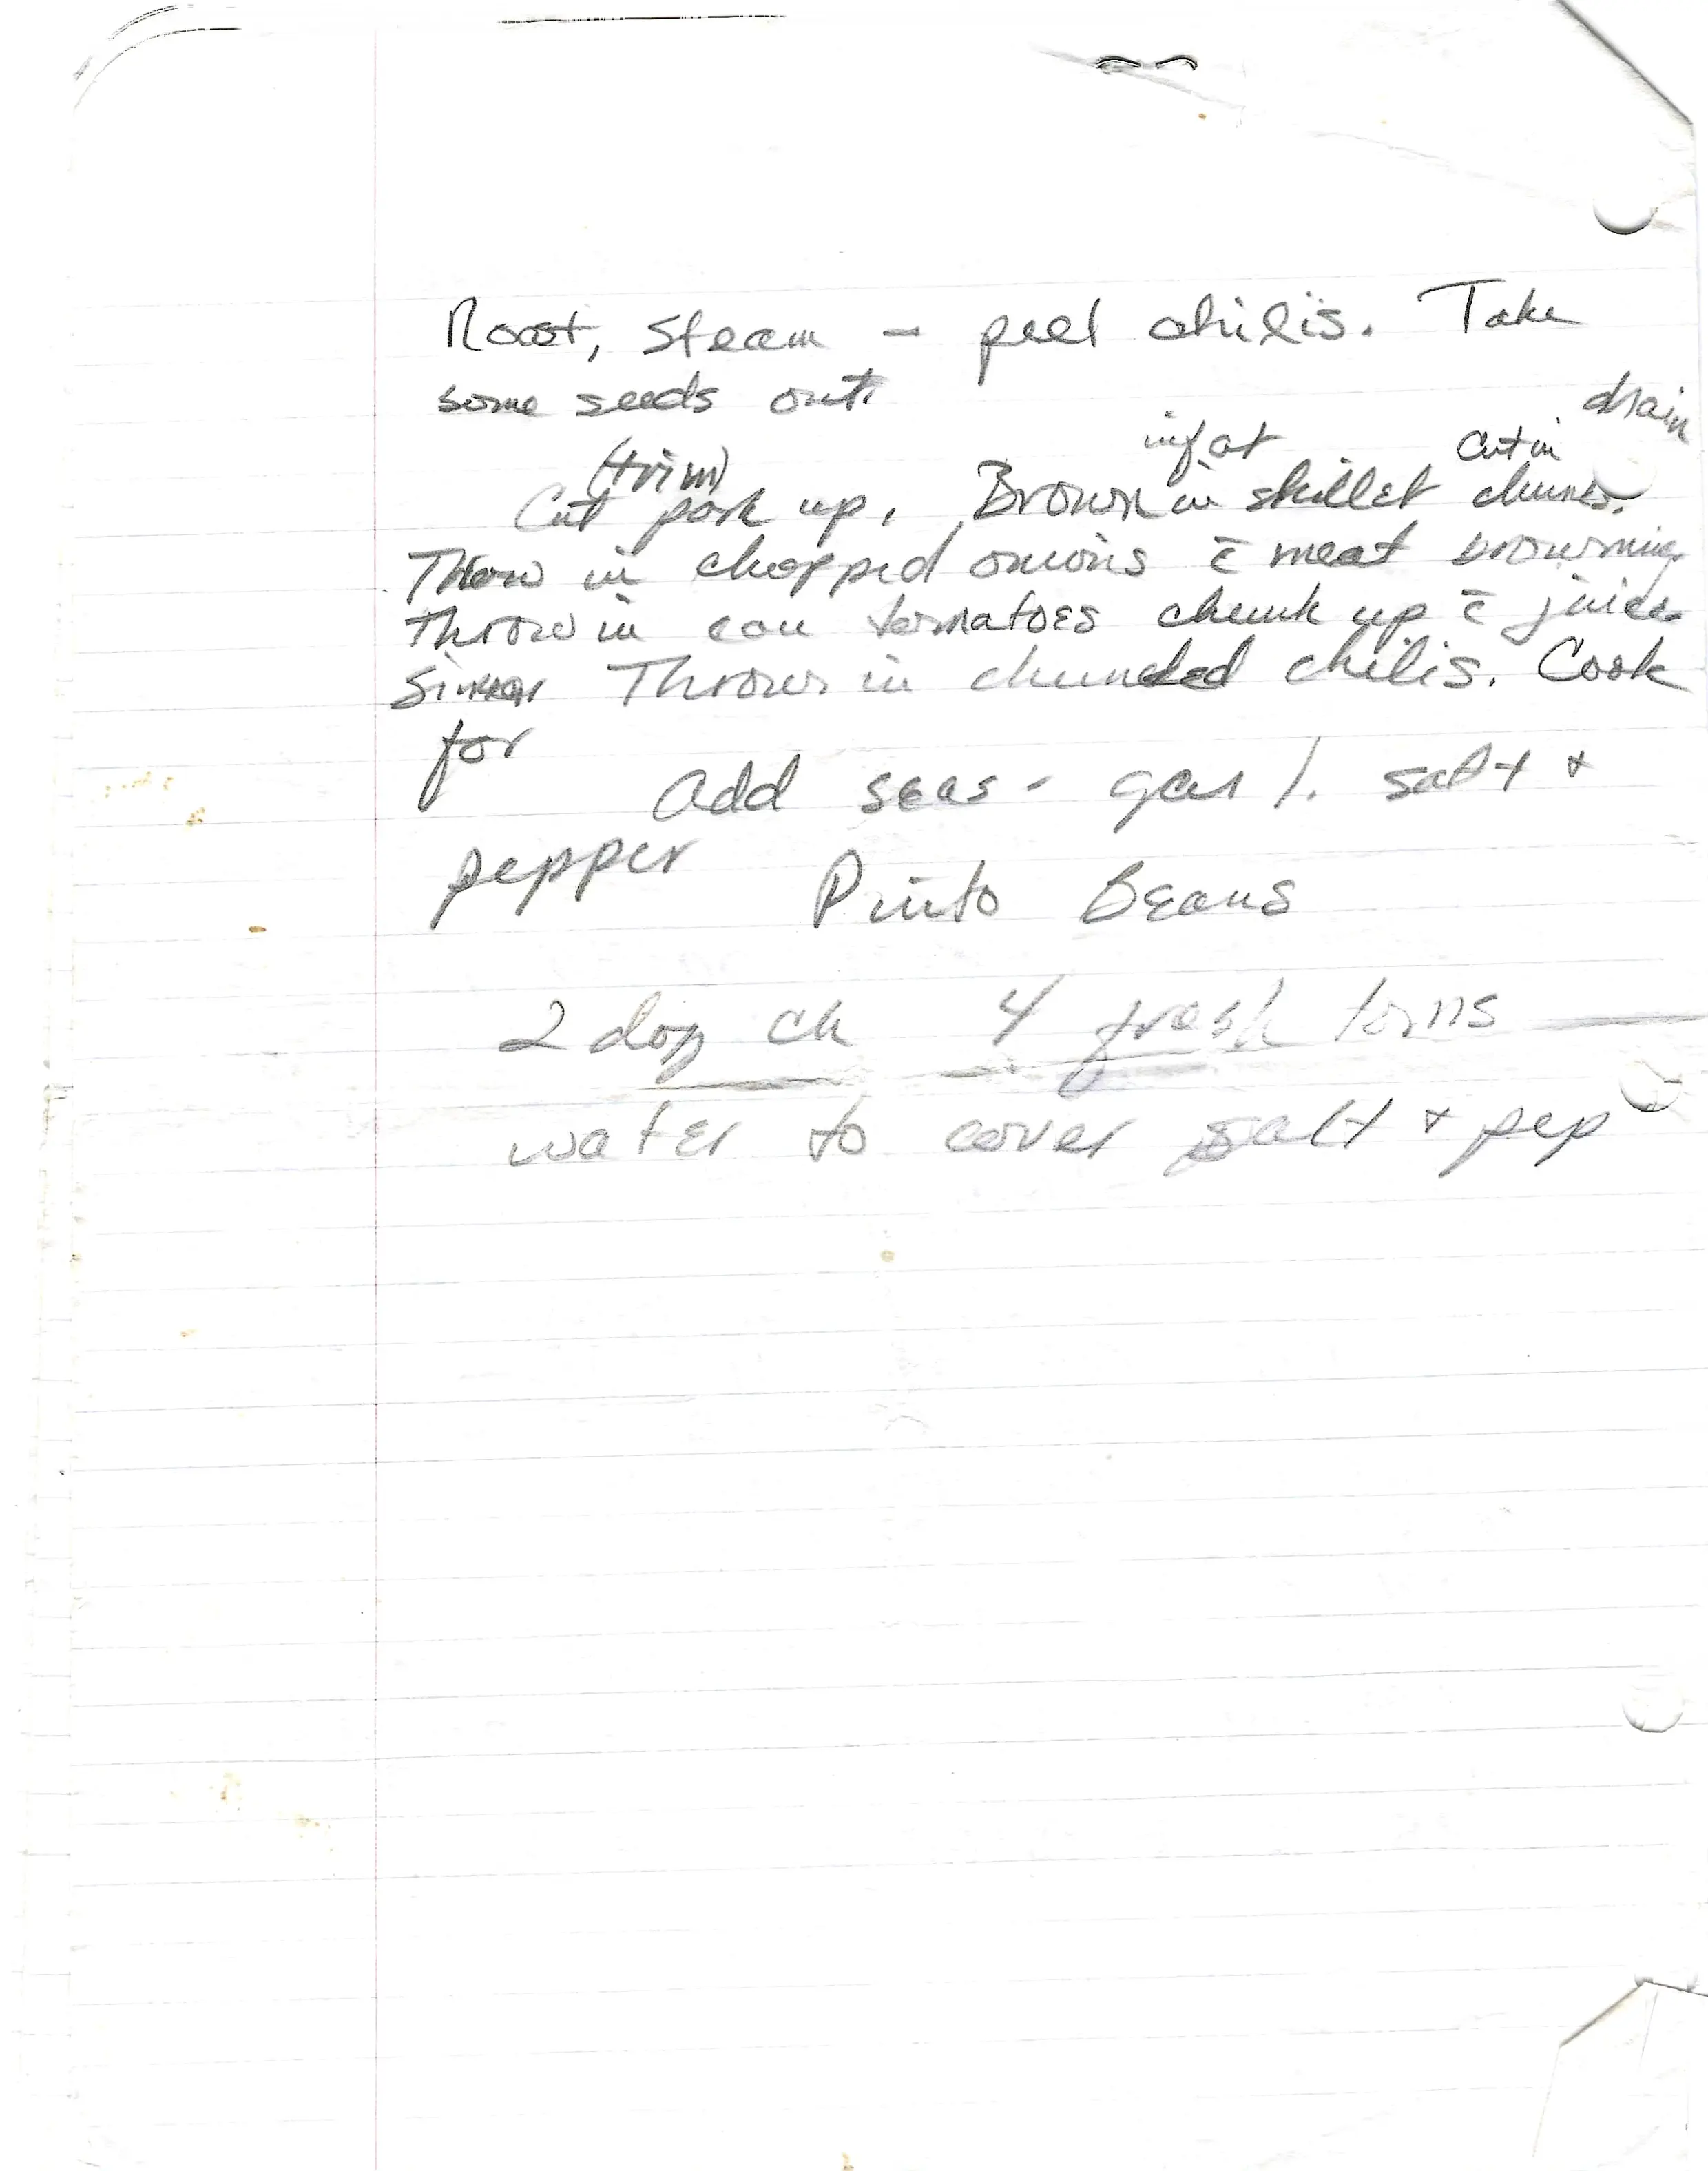 Roast, steam - peel chilis. Take
some seeds out.
drain
in fat cut in
(trim)
Cut pork up. Brown in skillet chunks.
Throw in chopped onions c̄ meat browning
Throw in can tomatoes chunk up c̄ juice
simmer Throw in chunked chilis. Cook
for
add seas - garl. salt +
pepper
Pinto Beans
2 doz ch 4 fresh toms
water to cover salt + pep